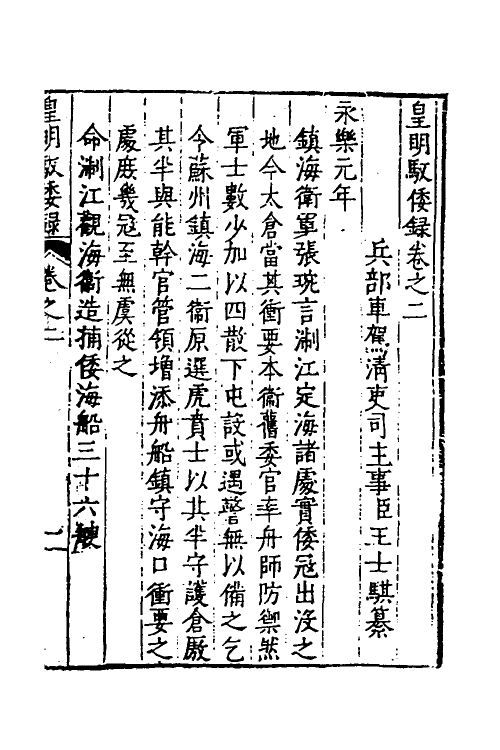 皇明馭倭録卷之二
兵部車駕清吏司主事臣王士騏纂
永樂元年
鎮海衛軍張琬言浙江定海諸處實倭冦出没之
地今太倉當其衝要本衛舊委官率舟師防禦然
軍士數少加以四散下屯設或遇警無以備之乞
令蘇州鎮海二衛原選虎賁士以其半守護倉厫
其半與能幹官管領增添舟船鎮守海口衝要之
處庶幾冦至無虞從之
命浙江觀海衛造捕倭海船三十六艘
皇明馭倭録 卷之二 一